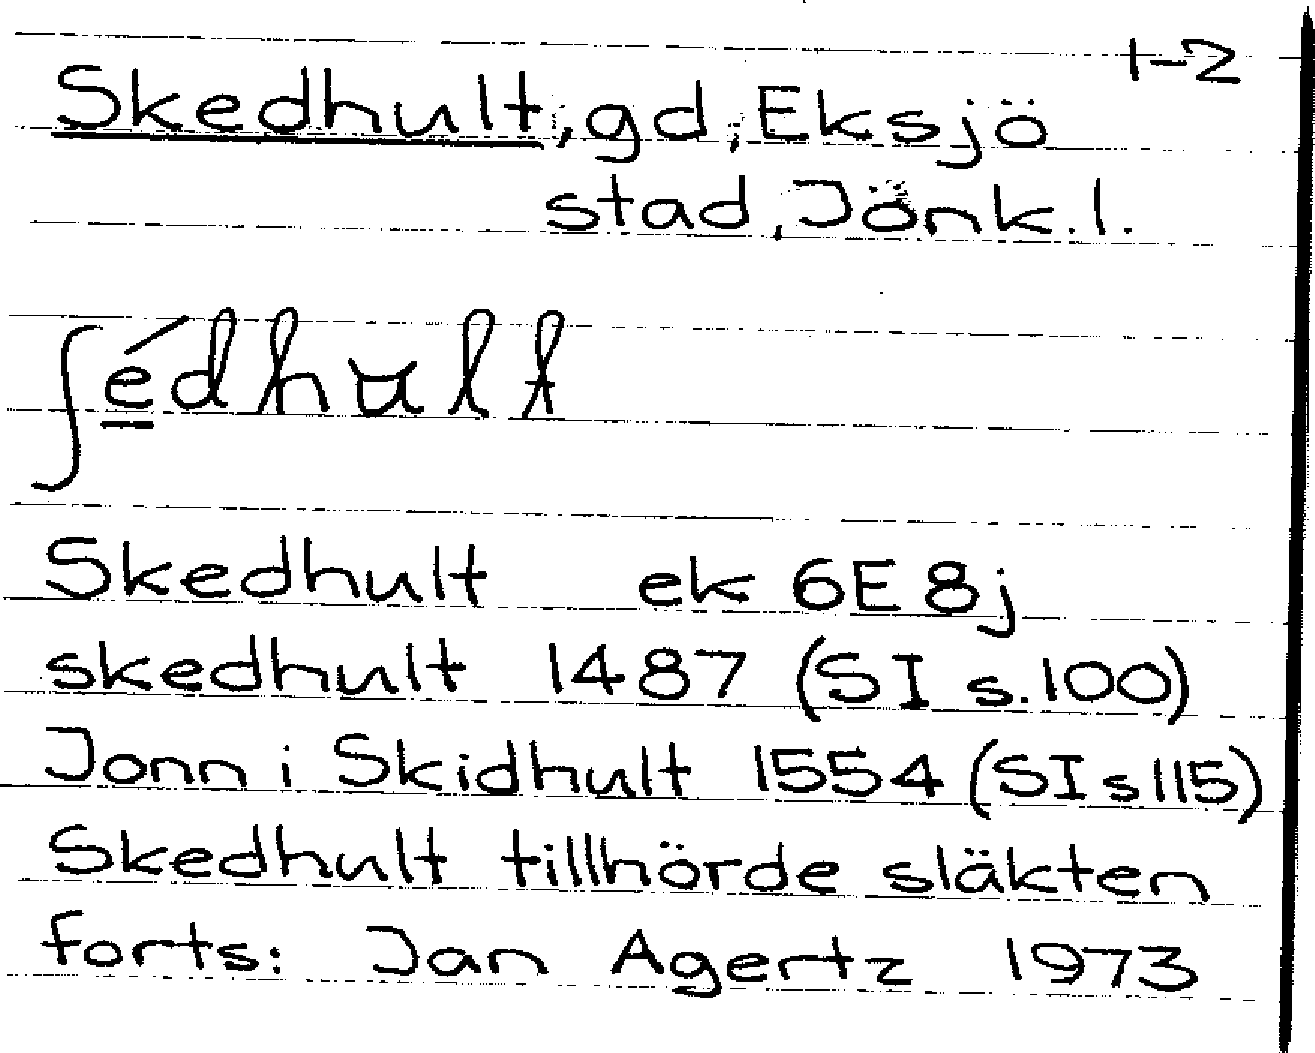 1-2
Skedhult, gd, Eksjö
stad, Jönk.l.
ʃédhult
Skedhult ek 6E 8j
skedhult 1487 (SI s.100)
Jonn i Skidhult 1554 (SI s 115)
Skedhult tillhörde släkten
forts: Jan Agertz 1973